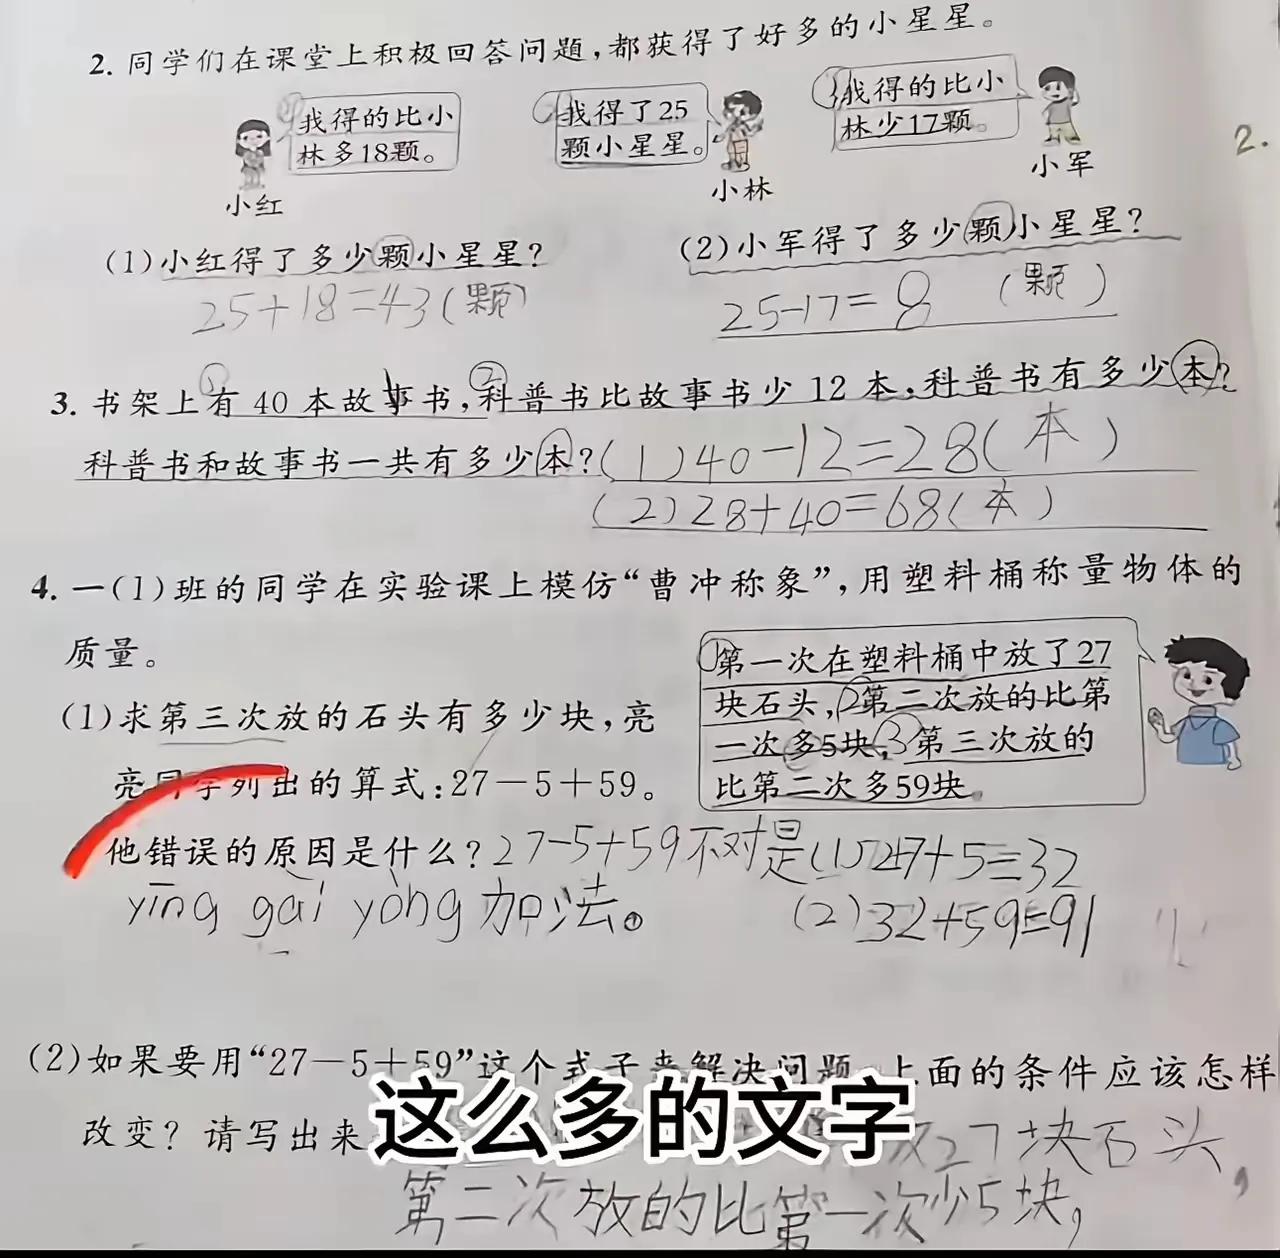 2. 同学们在课堂上积极回答问题,都获得了好多的小星星。
我得的比小
林多18颗。
小红
我得了25
颗小星星。
小林
我得的比小
林少17颗。
小军
2.
(1)小红得了多少颗小星星?
25+18=43(颗)
(2)小军得了多少颗小星星?
25-17=8 (颗)
3. 书架上有 40 本故事书,科普书比故事书少 12 本,科普书有多少本?
科普书和故事书一共有多少本?(1)40-12=28(本)
(2)28+40=68(本)
4. 一(1)班的同学在实验课上模仿“曹冲称象”,用塑料桶称量物体的
质量。
(1)求第三次放的石头有多少块,亮
亮同学列出的算式:27-5+59。
他错误的原因是什么?27-5+59不对是
yīng gāi yòng 加法。
①第一次在塑料桶中放了27
块石头,②第二次放的比第
一次多5块,③第三次放的
比第二次多59块。
(1)27+5=32
(2)32+59=91
(2)如果要用“27-5+59”这个式子来解决问题,上面的条件应该怎样
改变?请写出来
27块石头,
第二次放的比第一次少5块,
这么多的文字